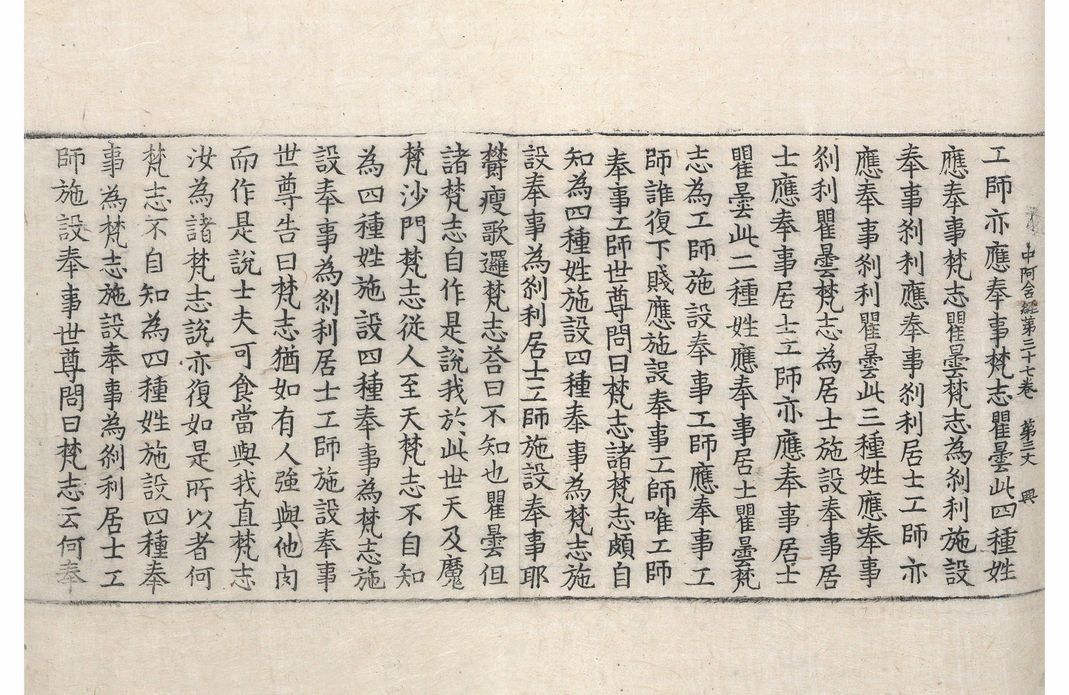 中阿含經第三十七卷 第三丈 興
工師亦應奉事梵志瞿曇此四種姓
應奉事梵志瞿曇梵志為剎利施設
奉事剎利應奉事剎利居士工師亦
應奉事剎利瞿曇此三種姓應奉事
剎利瞿曇梵志為居士施設奉事居
士應奉事居士工師亦應奉事居士
瞿曇此二種姓應奉事居士瞿曇梵
志為工師施設奉事工師應奉事工
師誰復下賤應施設奉事工師唯工師
奉事工師世尊問曰梵志諸梵志頗自
知為四種姓施設四種奉事為梵志施
設奉事為剎利居士工師施設奉事耶
欝瘦歌邏梵志荅曰不知也瞿曇但
諸梵志自作是說我於此世天及魔
梵沙門梵志從人至天梵志不自知
為四種姓施設四種奉事為梵志施
設奉事為剎利居士工師施設奉事
世尊告曰梵志猶如有人強與他肉
而作是說士夫可食當與我直梵志
汝為諸梵志說亦復如是所以者何
梵志不自知為四種姓施設四種奉
事為梵志施設奉事為剎利居士工
師施設奉事世尊問曰梵志云何奉